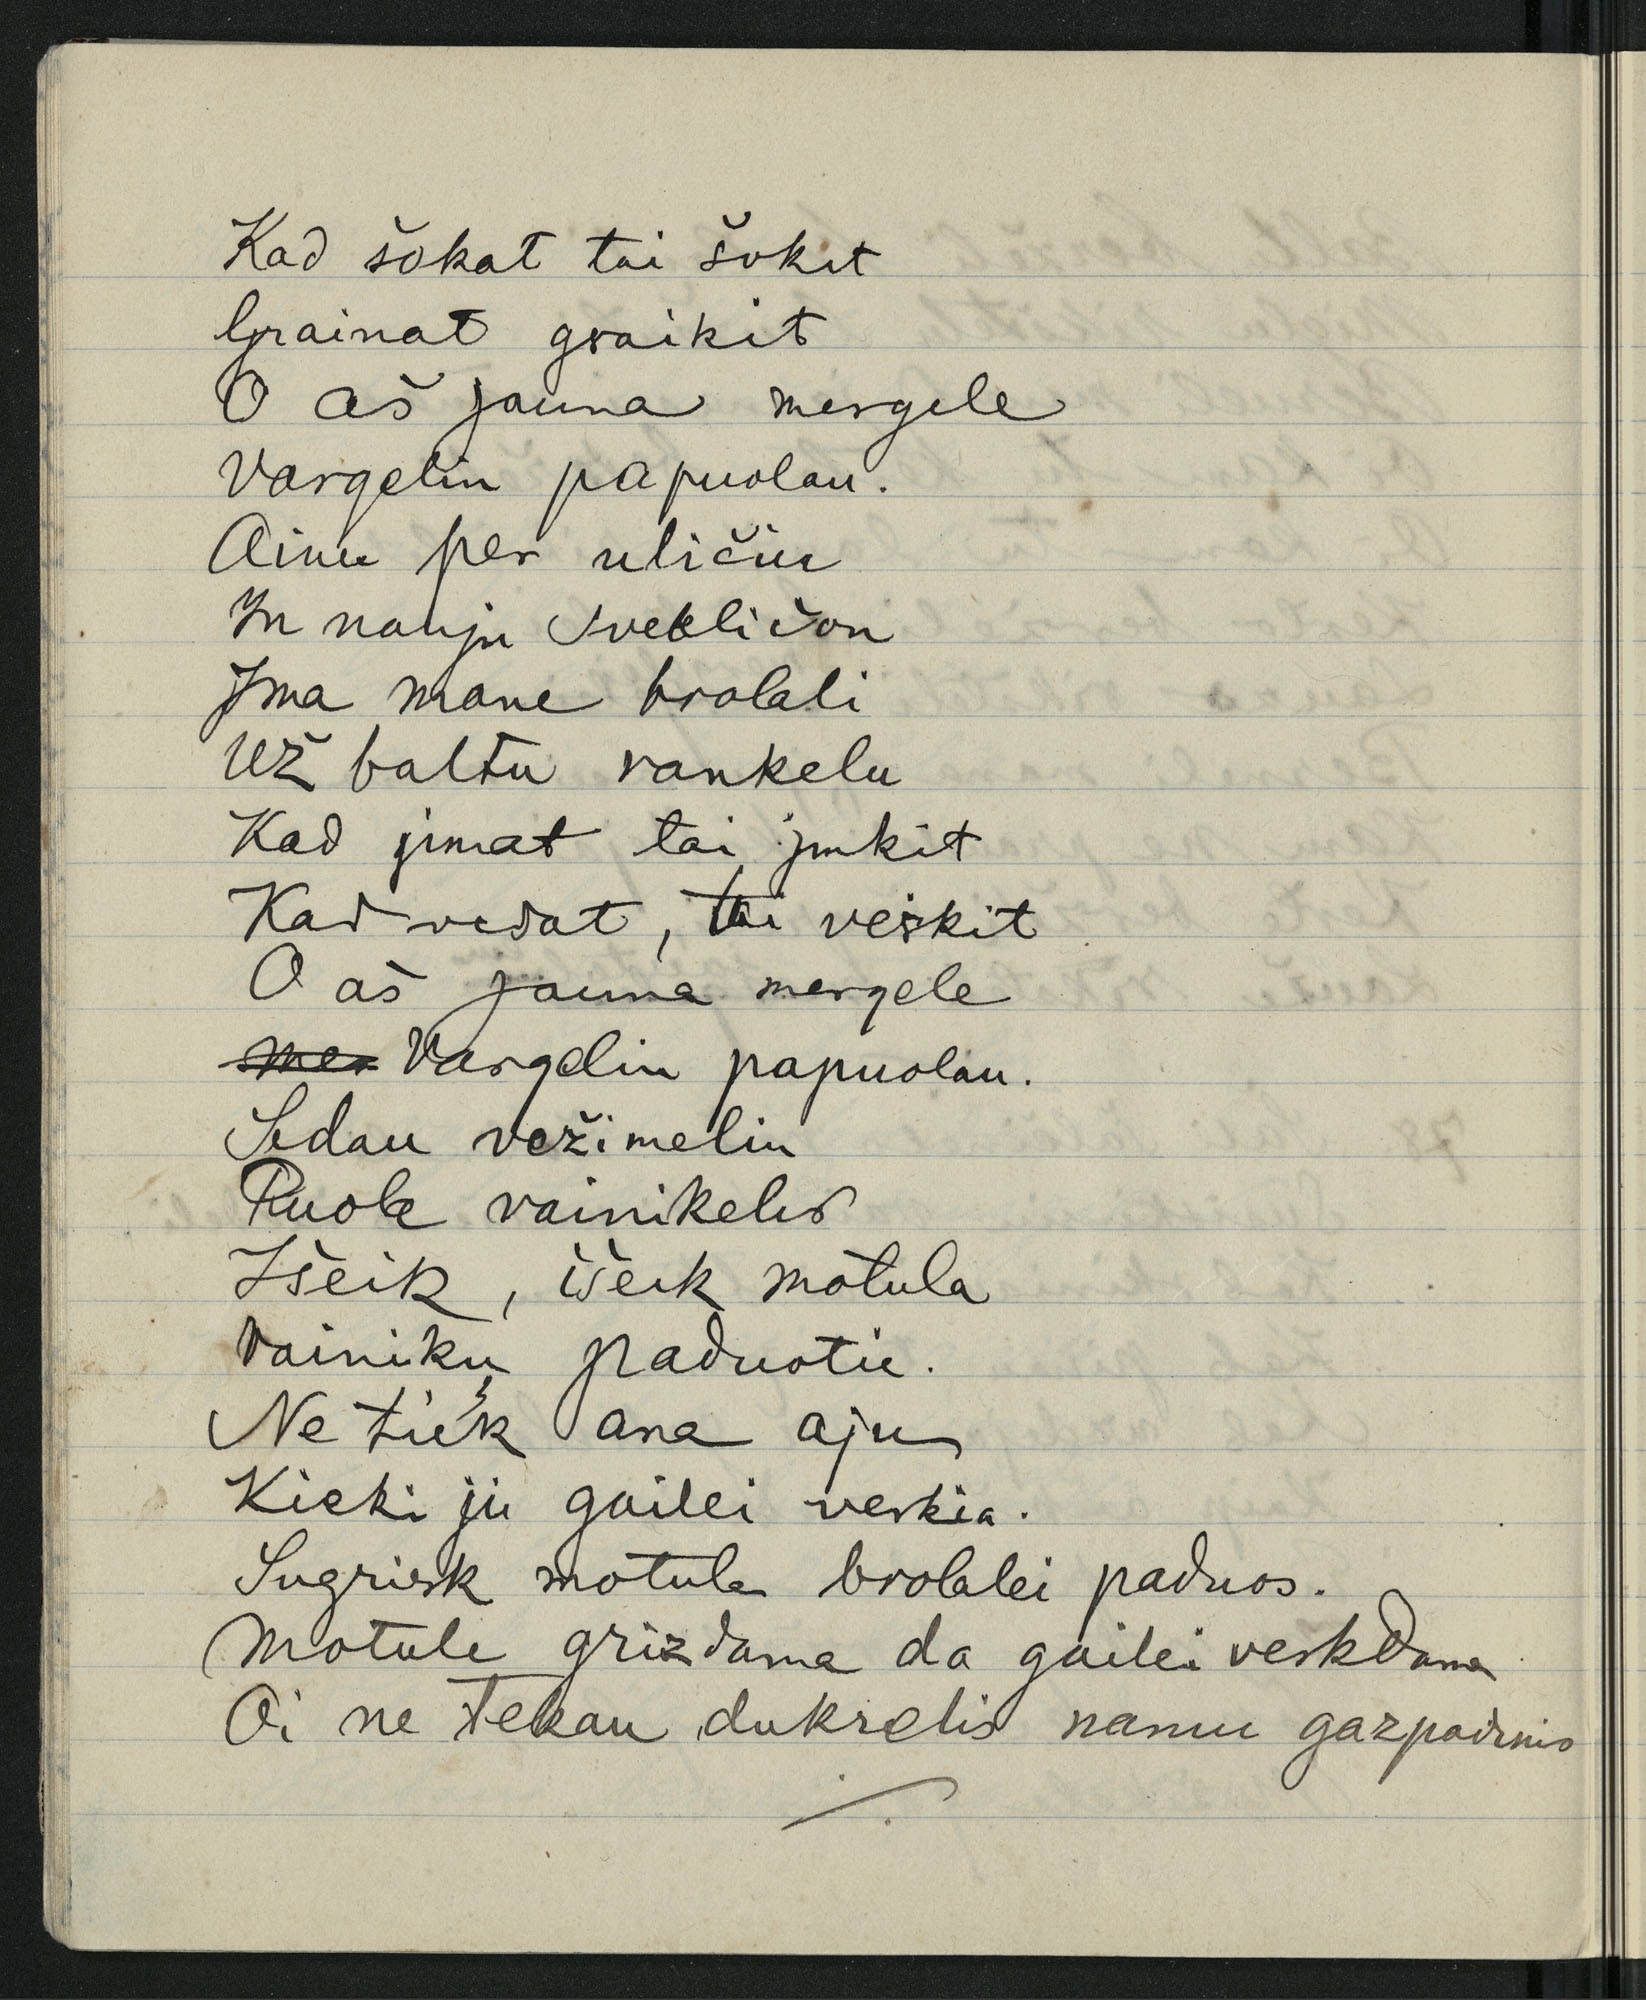 Kad šokat tai šokit
Grainat graikit
O aš jauna mergele
Vargelin papuolau.
Ainu per uličiu
In nauju svekličon
Jma mane brolali
Už baltu rankelu
Kad jimat tai jimkit
Kad vedat, tai veskit
O aš jauna mergele
mer Vargelin papuolau.
Sedau vežimelin
Puole vainikelis
Išeik, išeik motula
Vainiku paduotie.
Ne tiek ana ajus
Kieki ju gailei verkia.
Sugriešk motula brolalei paduos.
Motule grizdama da gailei verkdama
Oi ne tekau dukrelis namu gazpadinis